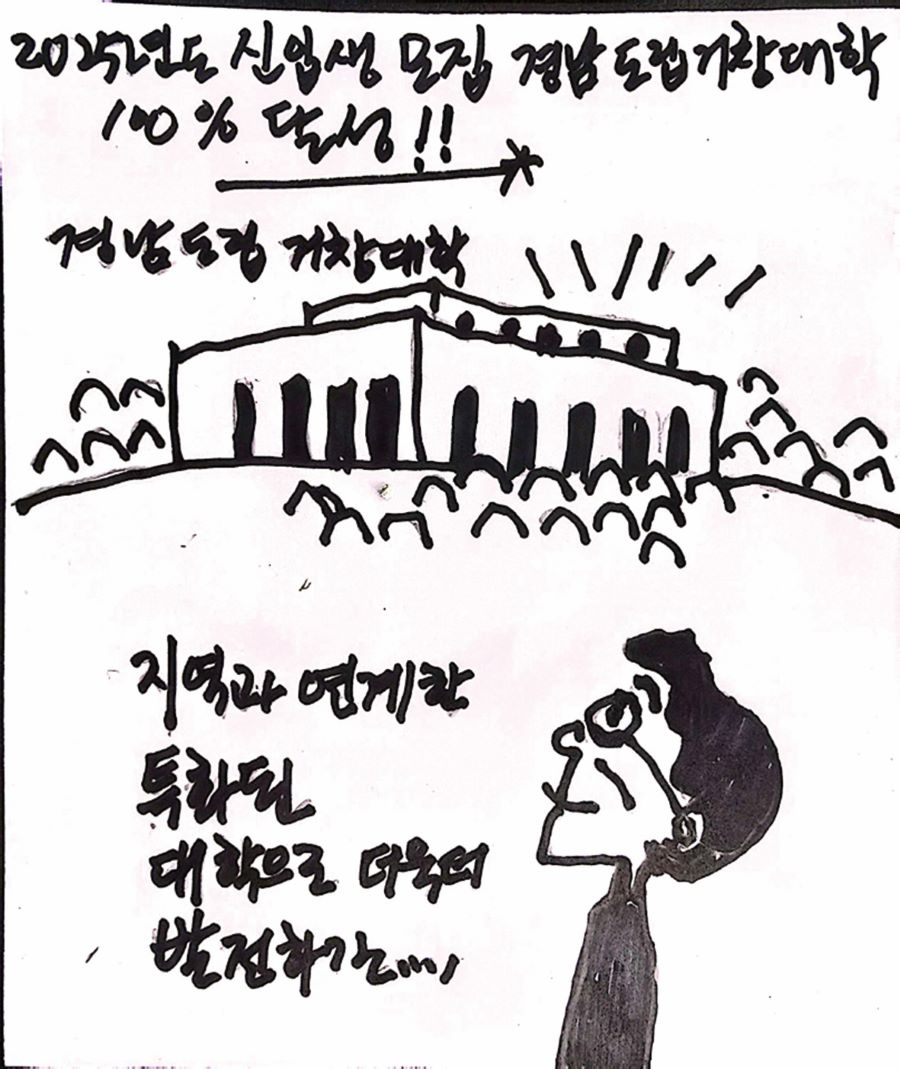 2025년도 신입생 모집 경남도립거창대학
100% 달성!!
경남도립 거창대학
지역과 연계한
특화된
대학으로 더욱더
발전하길....,